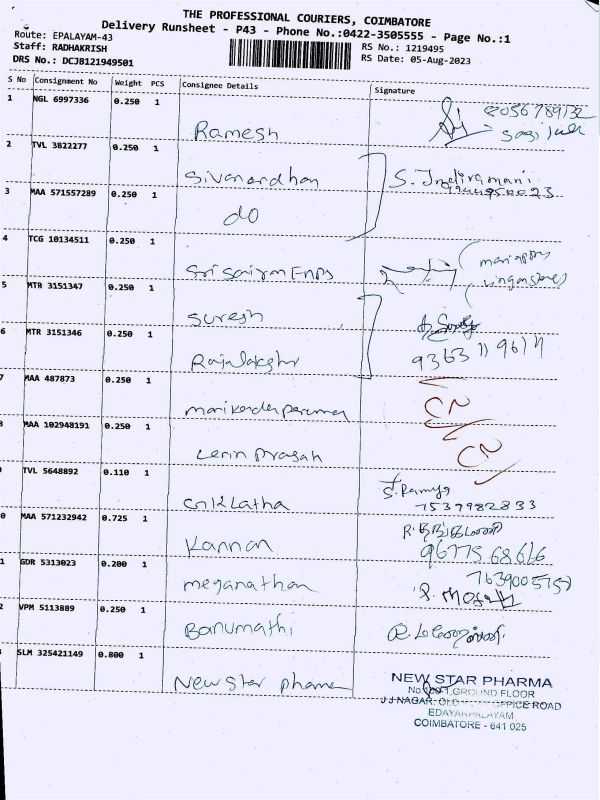 THE PROFESSIONAL COURIERS, COIMBATORE
Delivery Runsheet - P43 - Phone No.:0422-3505555 - Page No.:1
Route: EPALAYAM-43
Staff: RADHAKRISH
DRS No.: DCJB121949501
RS No.: 1219495
RS Date: 05-Aug-2023
S No Consignment No Weight PCS Consignee Details Signature
1 NGL 6997336 0.250 1
Ramesh
2 TVL 3822277 0.250 1
Sivanandhan
3 MAA 571557289 0.250 1
do
4 TCG 10134511 0.250 1
Sri Sairam Enps
5 MTR 3151347 0.250 1
Suresh
6 MTR 3151346 0.250 1
9363119614
7 MAA 487873 0.250 1
CN
MAA 102948191 0.250 1
Lenin Prasath
CN
TVL 5648892 0.110 1
S. Ramya
Latha 7539982833
0 MAA 571232942 0.725 1
Kannan
1 GDR 5313023 0.200 1
meganathan
2 VPM 5113889 0.250 1
Banumathi
SLM 325421149 0.800 1
New Star pharma
NEW STAR PHARMA
GROUND FLOOR
J J NAGAR, OFFICE ROAD
EDAYARPALAYAM
COIMBATORE - 641 025